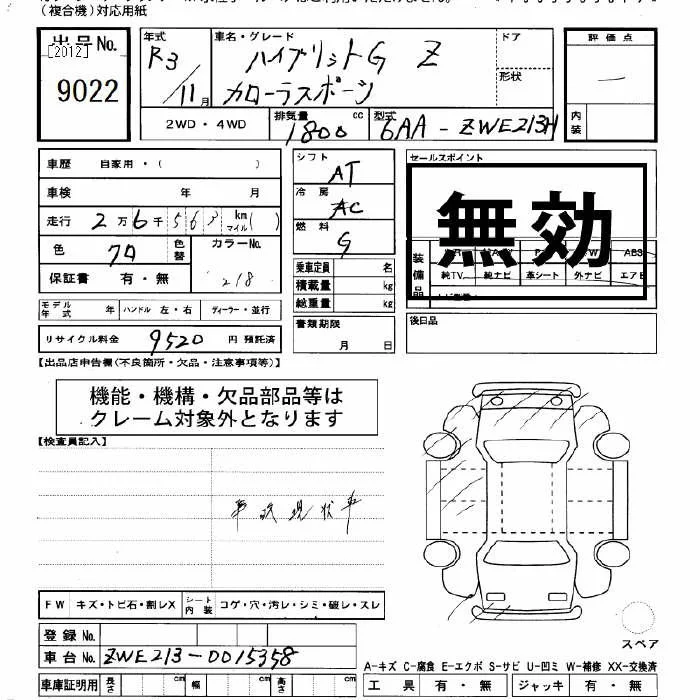 (複合機)対応用紙
出品No.
[2012]
9022
年式
R3/11月
車名・グレード
ハイブリットG Z
カローラスポーツ
ドア
形状
評価点
一
内装
2WD・4WD
排気量
1800cc
型式
6AA-ZWE213H
車歴 自家用・( )
車検 年 月
走行 2万6千563 km マイル( )
色 クロ 色替 カラーNo. 218
保証書 有・無
モデル年式 年 ハンドル 左・右 ディーラー・並行
リサイクル料金 9520 円 預託済
シフト AT
冷房 AC
燃料 G
乗車定員 名
積載量 kg
総重量 kg
書類期限
月 日
セールスポイント
無効
装備品
純TV 純ナビ 革シート 外ナビ エアB
後日品
【出品店申告欄(不良箇所・欠品・注意事項等)】
機能・機構・欠品部品等は
クレーム対象外となります
【検査員記入】
事故現状車
FW キズ・トビ石・割レX シート内装 コゲ・穴・汚レ・シミ・破レ・スレ
登録No.
車台No. ZWE213-0015358
車庫証明用 長さ cm 幅 cm 高さ cm
スペア
A-キズ C-腐食 E-エクボ S-サビ U-凹ミ W-補修 XX-交換済
工具 有・無 ジャッキ 有・無